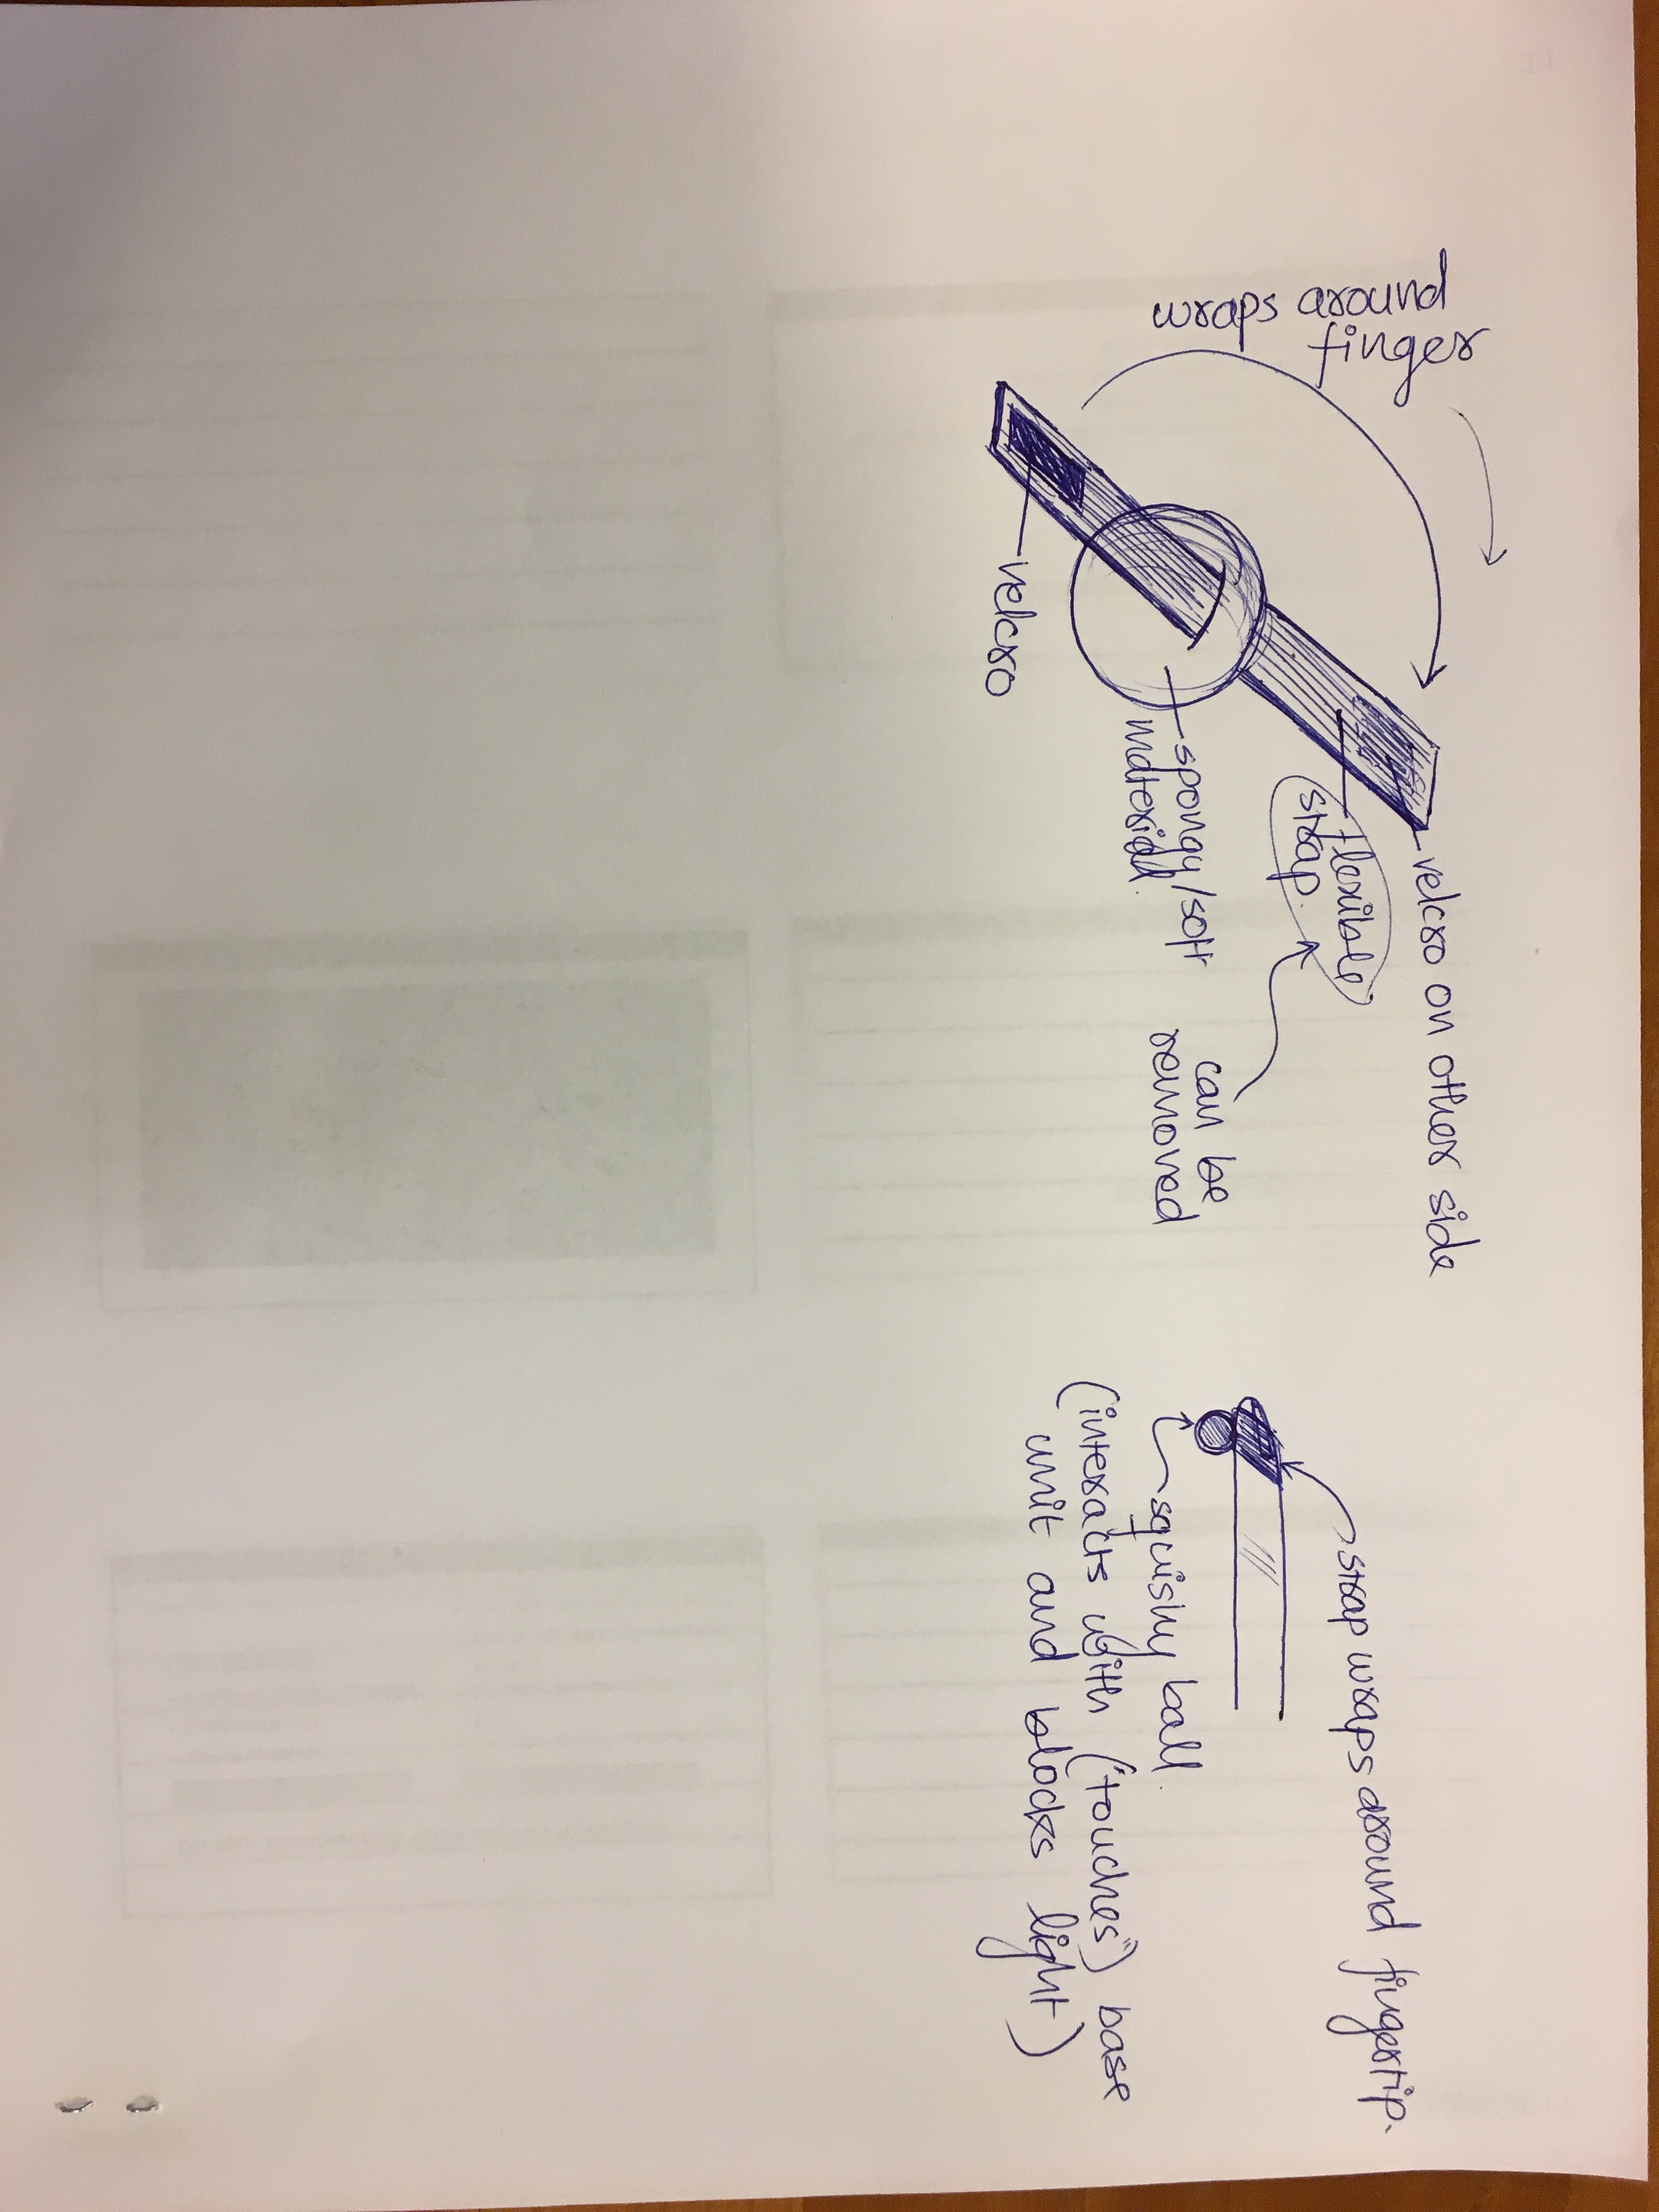 wraps around
finger
velcro on other side
flexible
strap.
can be
removed
spongy/soft
material.
velcro
strap wraps around fingertip.
squishy ball.
(interacts with ("touches") base
unit and blocks light)